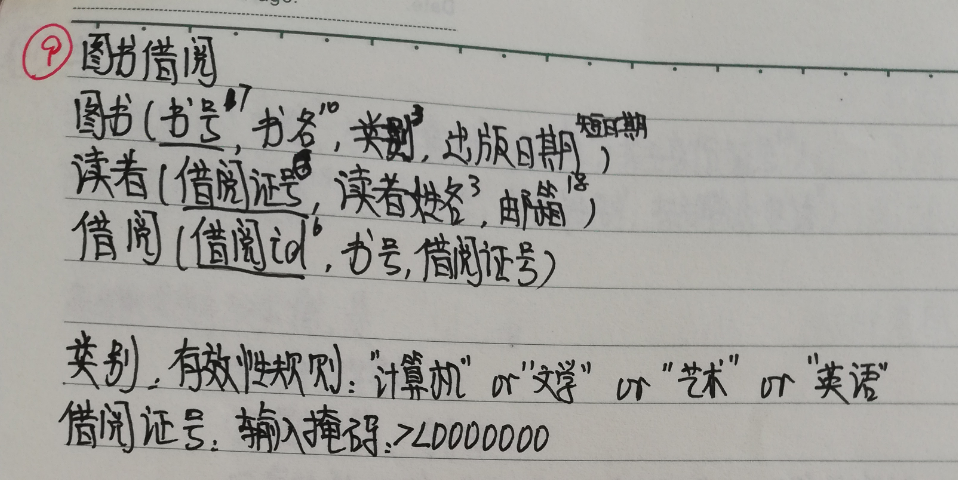 Date
⑨ 图书借阅
图书(书号17, 书名10, 类别3, 出版日期短日期)
读者(借阅证号8, 读者姓名3, 邮箱18)
借阅(借阅id6, 书号, 借阅证号)
类别: 有效性规则: "计算机" or "文学" or "艺术" or "英语"
借阅证号: 输入掩码: >L0000000